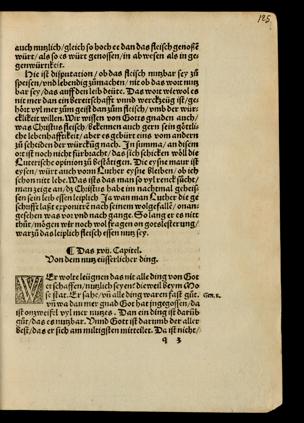 125
auch nutzlich/gleich so hoch er dan das fleisch genoßẽ
würt/als so es würt genossen/in abwesen als in ge-
genwürtikeit.
Hie ist disputation/ob das fleisch nutzbar sey zů
speisen/vnd lebendig zůmachen/nie ob das wort nutz
bar sey/das auff den leib deüt. Das wort wiewol es
nit mer dan ein bereitschafft vnnd werckzeüg ist/ge-
hört mer zům geist dan zům fleisch/vmb der würck-
likeit willen. Wir wissen von Gotts gnaden auch/
was Christus fleisch/bekennen auch gern sein götli-
che lebenhafftikeit/aber es gebürt eins vom andern
zů scheiden der würckũg nach. In summa/an disem
ort ist noch nicht fürbracht/das sich schicken wöll die
Luterische opinion zů bestätigen.
eysen/würt auch vonn Luther eysne bleiben/ob ich
schon nitt lebe. Was ists das man so vyl rent
man zeige an/dz Christus habe im nachtmal geheis-
sen sein leib essen leiplich Ja wan man Luther die ge
schrifft laßt exponierẽ nach seinem wolgefallẽ/onan-
gesehen was vor vnd nach gange. So lang er es nit
thůt/mögen wir noch wol fragen on gotslesterung/
warzů das leiplich fleisch essen nutz sey.
¶ Das xvij. Capitel.
Von dem nutz eüsserlicher ding.
WEr wolte leügnen das nit alle ding von Got
erschaffen/nutzlich seyen: die weil beym Mo
se stat. Er sahe/vñ alle ding waren fast gůt. Gen.1.
vñ wa dan mer gnad Got hat ingegossen/da
ist on zweifel vyl mer nutzes. Dan ein ding ist darũb
gůt/das es nutzbar. Vnnd Gott ist darumb der aller
best/das er sich am miltigsten mitteilet. Da ist nicht/
q 3